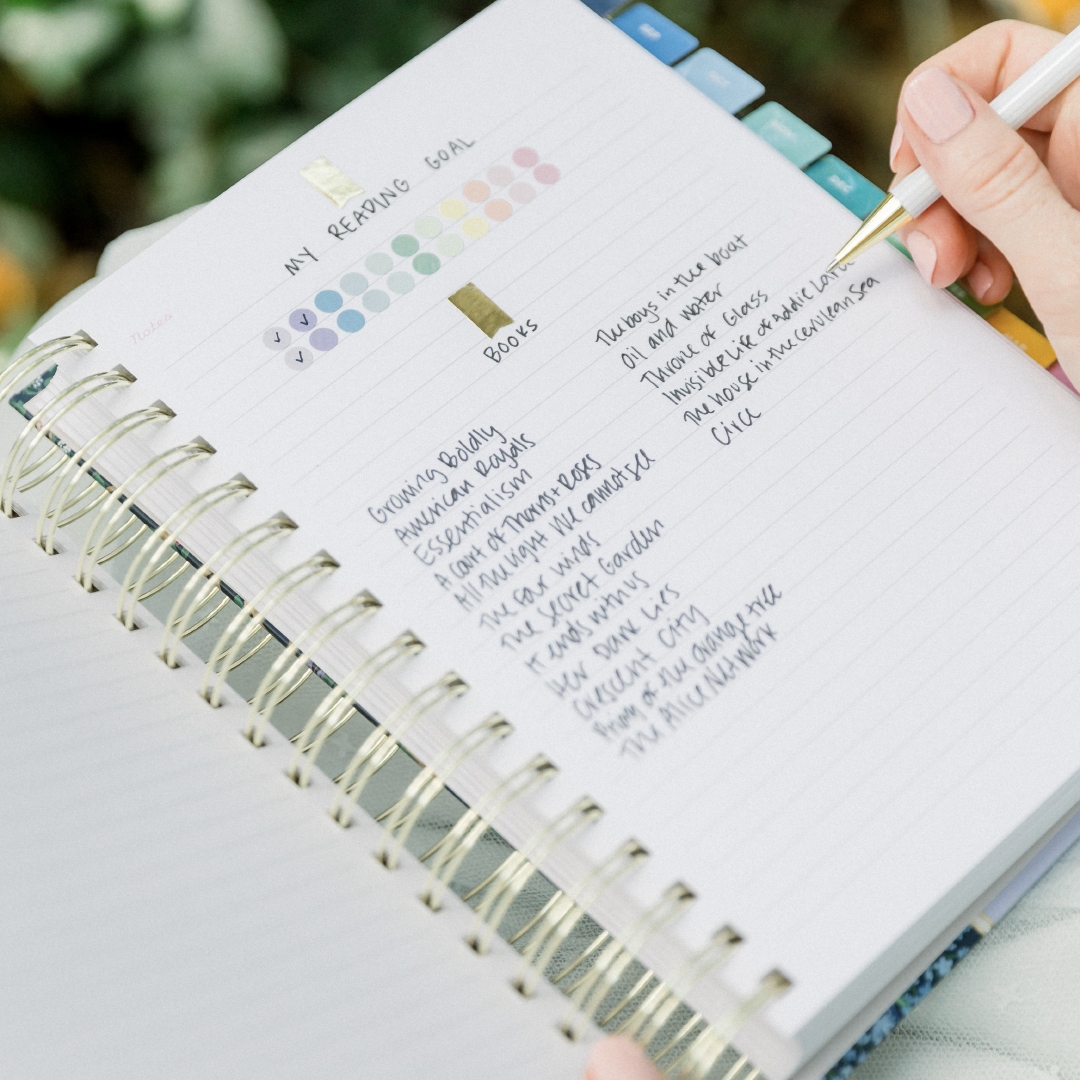 Notes
MY READING GOAL
BOOKS
Growing Boldly
American Royals
Essentialism
A court of Thorns + Roses
All the light We cannot see
The Four Winds
The Secret Garden
It ends with us
Her Dark Lies
Crescent City
Priory of the orange tree
The Alice Network
The boys in the boat
Oil and water
Throne of Glass
Invisible life of Addie Larue
The house in the cerulean Sea
Circe